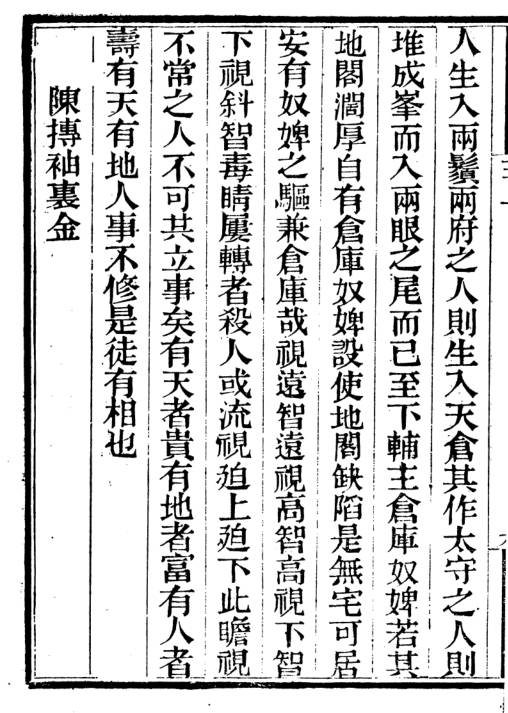 人生入兩鬢兩府之人則生入天倉其作太守之人則
堆成峯而入兩眼之尾而已至下輔主倉庫奴婢若其
地閣濶厚自有倉庫奴婢設使地閣缺陷是無宅可居
安有奴婢之驅兼倉庫哉視遠智遠視高智高視下智
下視斜智毒睛屢轉者殺人或流視廹上廹下此瞻視
不常之人不可共立事矣有天者貴有地者富有人者
壽有天有地人事不修是徒有相也
陳摶袖裏金